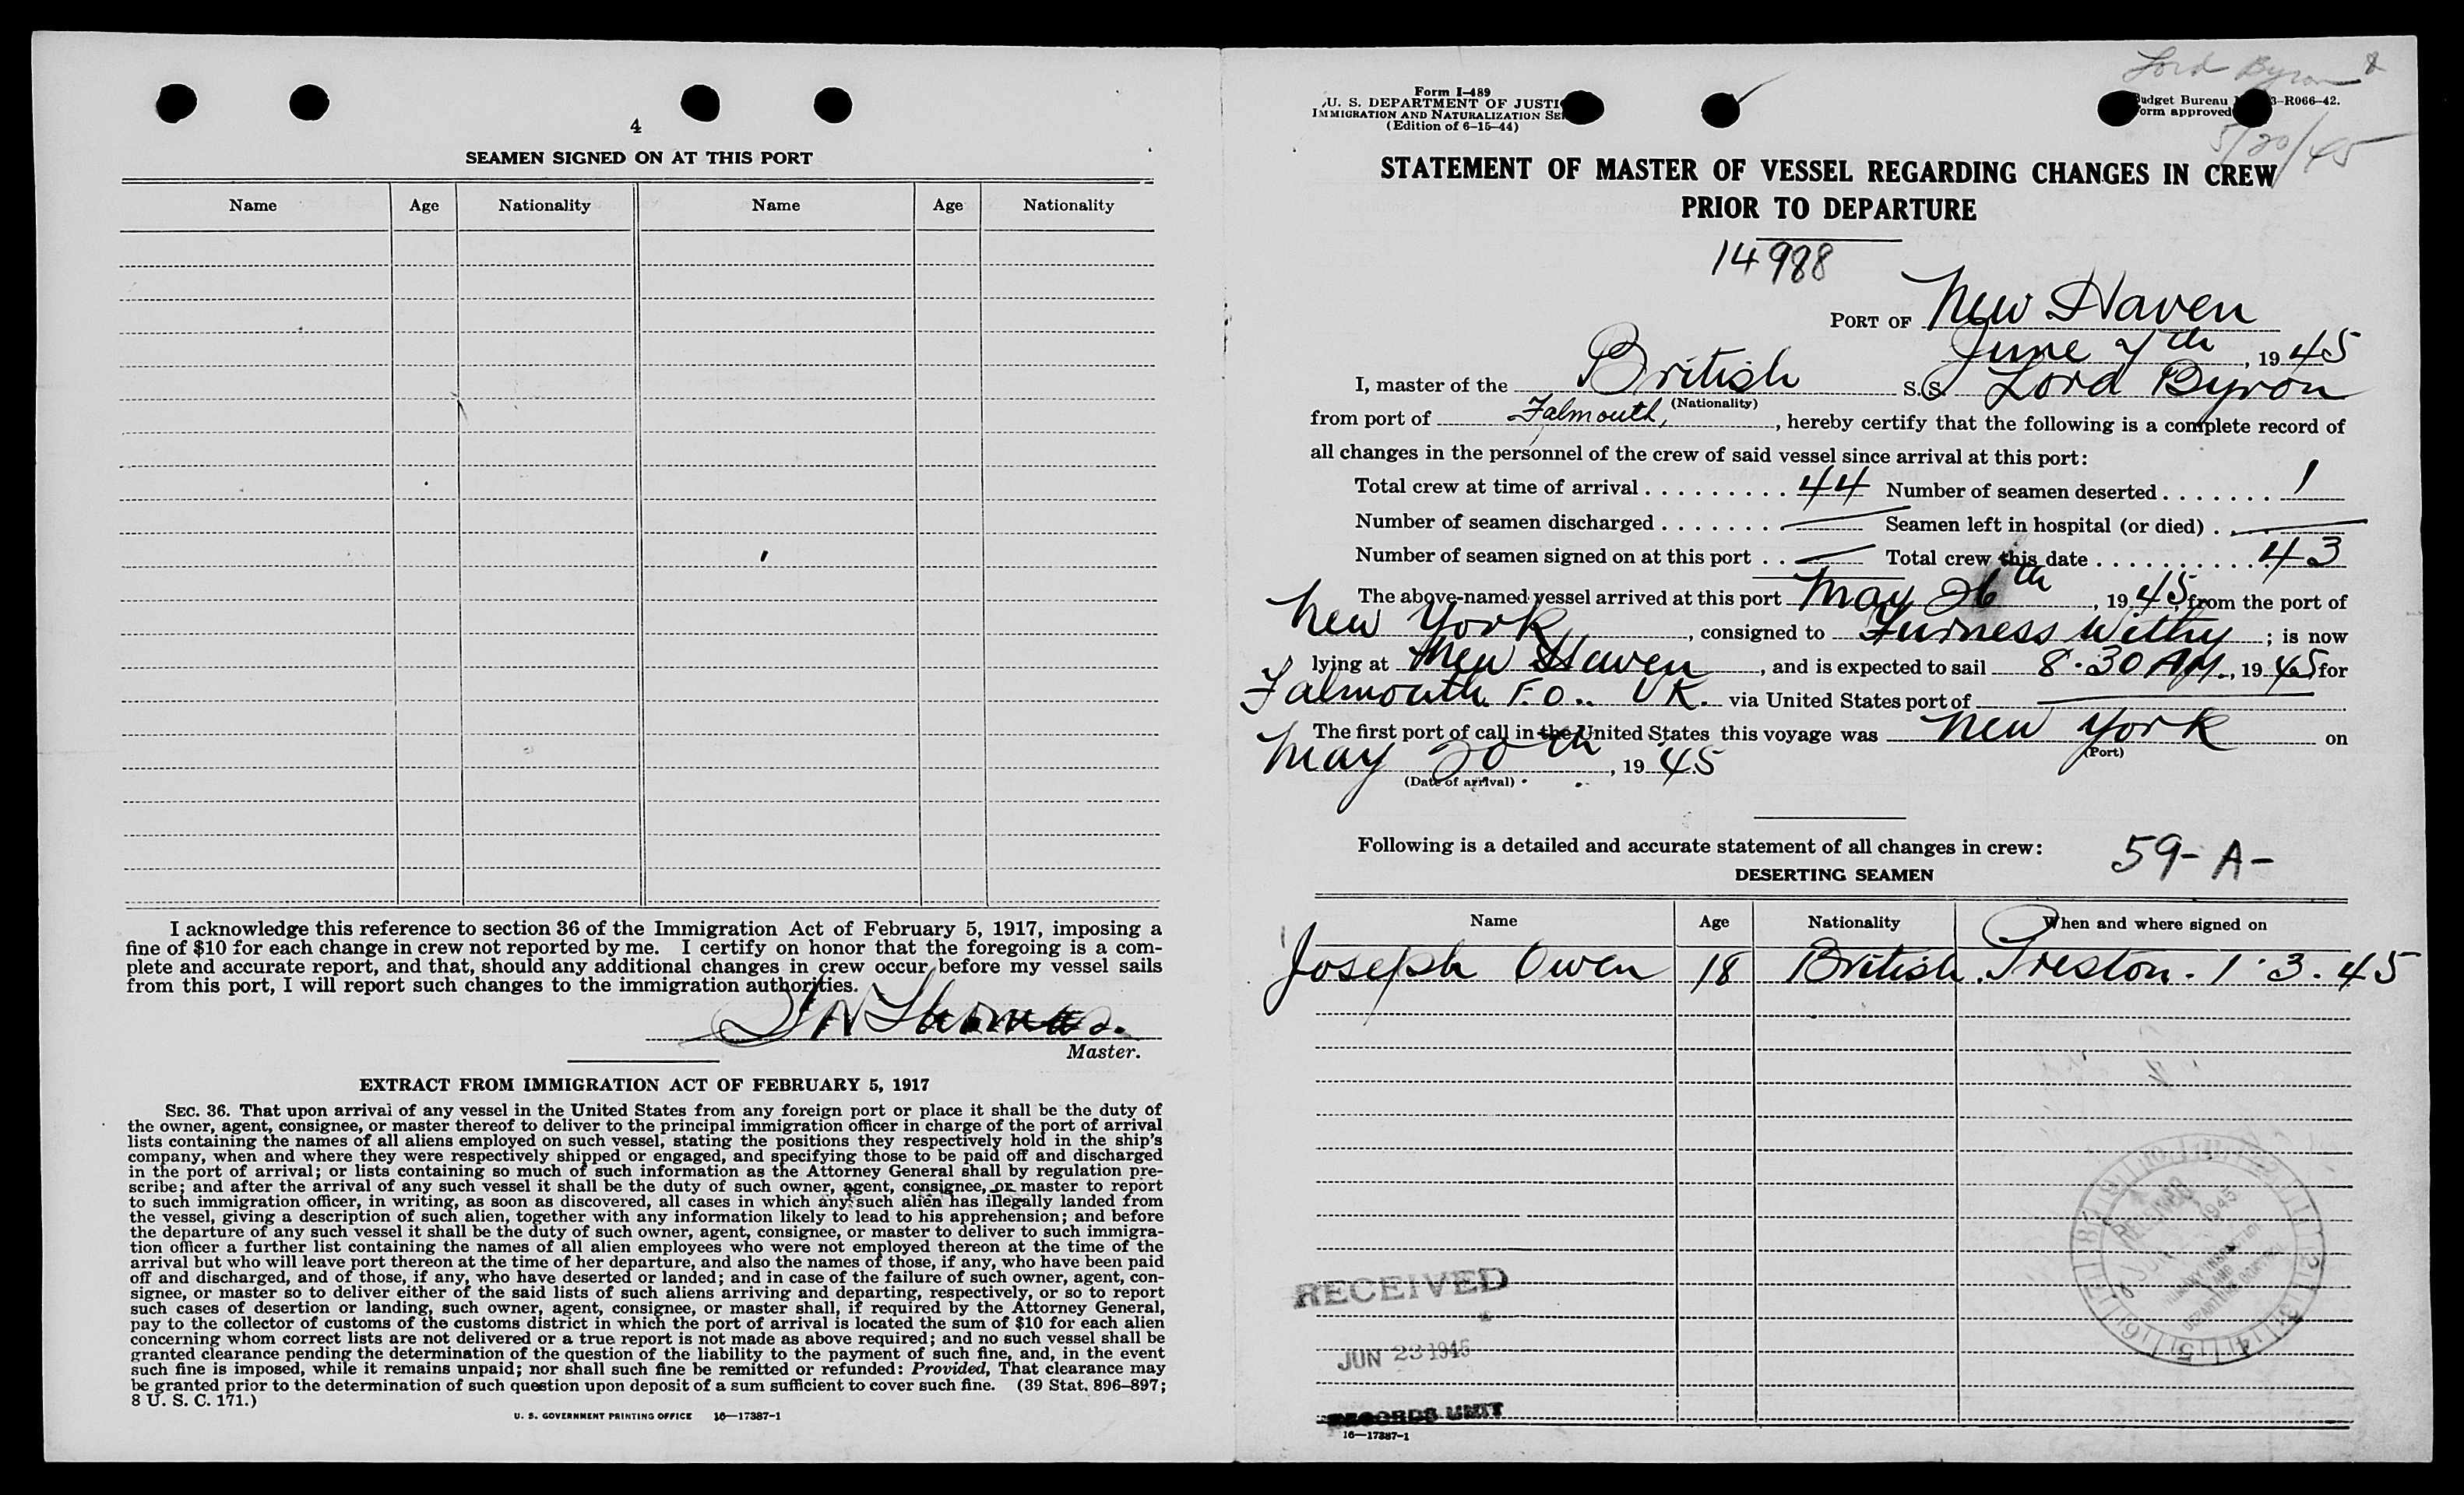 4
SEAMEN SIGNED ON AT THIS PORT
Name Age Nationality Name Age Nationality
I acknowledge this reference to section 36 of the Immigration Act of February 5, 1917, imposing a
fine of $10 for each change in crew not reported by me. I certify on honor that the foregoing is a com-
plete and accurate report, and that, should any additional changes in crew occur before my vessel sails
from this port, I will report such changes to the immigration authorities.
Master.
EXTRACT FROM IMMIGRATION ACT OF FEBRUARY 5, 1917
SEC. 36. That upon arrival of any vessel in the United States from any foreign port or place it shall be the duty of
the owner, agent, consignee, or master thereof to deliver to the principal immigration officer in charge of the port of arrival
lists containing the names of all aliens employed on such vessel, stating the positions they respectively hold in the ship's
company, when and where they were respectively shipped or engaged, and specifying those to be paid off and discharged
in the port of arrival; or lists containing so much of such information as the Attorney General shall by regulation pre-
scribe; and after the arrival of any such vessel it shall be the duty of such owner, agent, consignee, or master to report
to such immigration officer, in writing, as soon as discovered, all cases in which any such alien has illegally landed from
the vessel, giving a description of such alien, together with any information likely to lead to his apprehension; and before
the departure of any such vessel it shall be the duty of such owner, agent, consignee, or master to deliver to such immigra-
tion officer a further list containing the names of all alien employees who were not employed thereon at the time of the
arrival but who will leave port thereon at the time of her departure, and also the names of those, if any, who have been paid
off and discharged, and of those, if any, who have deserted or landed; and in case of the failure of such owner, agent, con-
signee, or master so to deliver either of the said lists of such aliens arriving and departing, respectively, or so to report
such cases of desertion or landing, such owner, agent, consignee, or master shall, if required by the Attorney General,
pay to the collector of customs of the customs district in which the port of arrival is located the sum of $10 for each alien
concerning whom correct lists are not delivered or a true report is not made as above required; and no such vessel shall be
granted clearance pending the determination of the question of the liability to the payment of such fine, and, in the event
such fine is imposed, while it remains unpaid; nor shall such fine be remitted or refunded: Provided, That clearance may
be granted prior to the determination of such question upon deposit of a sum sufficient to cover such fine. (39 Stat. 896–897;
8 U. S. C. 171.)
U. S. GOVERNMENT PRINTING OFFICE 16—17387-1
Lord Byron
Form I-489
U. S. DEPARTMENT OF JUSTI
IMMIGRATION AND NATURALIZATION SE
(Edition of 6-15-44)
Budget Bureau 3-R066-42.
Form approved
5/20/45
STATEMENT OF MASTER OF VESSEL REGARDING CHANGES IN CREW
PRIOR TO DEPARTURE
14988
PORT OF New Haven
June 7th, 1945
I, master of the British S.S. Lord Byron
(Nationality)
from port of Falmouth, hereby certify that the following is a complete record of
all changes in the personnel of the crew of said vessel since arrival at this port:
Total crew at time of arrival . . . . . . . . . 44 Number of seamen deserted . . . . . . . 1
Number of seamen discharged . . . . . . . — Seamen left in hospital (or died) . . —
Number of seamen signed on at this port . . — Total crew this date . . . . . . . . . . . 43
The above-named vessel arrived at this port May 26th, 1945, from the port of
New York, consigned to Furness Withy; is now
lying at New Haven, and is expected to sail 8.30 AM., 1945 for
Falmouth F.O. UK. via United States port of —
The first port of call in the United States this voyage was New York on
(Port)
May 20th, 1945
(Date of arrival)
Following is a detailed and accurate statement of all changes in crew: 59-A-
DESERTING SEAMEN
Name Age Nationality When and where signed on
Joseph Owen 18 British. Preston. 1.3.45
RECEIVED
JUN 23 1945
RECORDS UNIT
16—17387-1
RECEIVED
JUN 1945